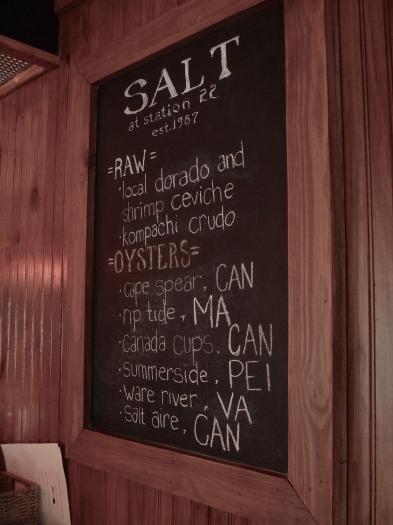 SALT
at station 22
est.1987
=RAW=
·local dorado and
shrimp ceviche
·kompachi crudo
=OYSTERS=
·cape spear, CAN
·rip tide, MA
·canada cups, CAN
·summerside, PEI
·ware river, VA
·salt aire, CAN